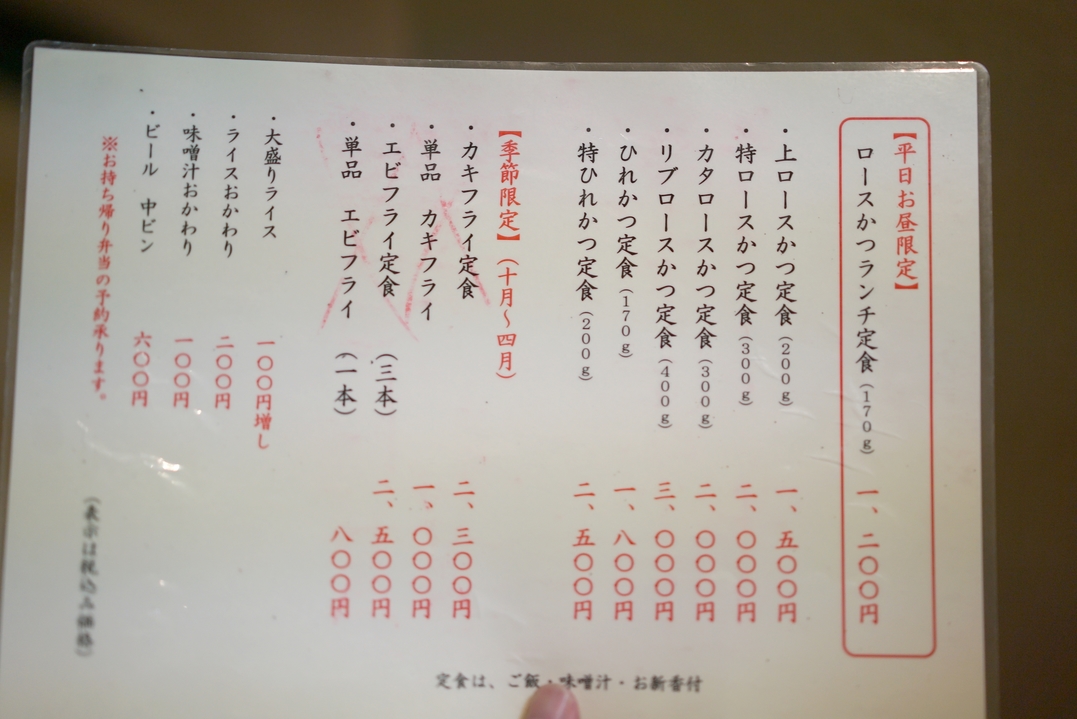 【平日お昼限定】
ロースかつランチ定食（170g） 一、二〇〇円
・上ロースかつ定食（200g） 一、五〇〇円
・特ロースかつ定食（300g） 二、〇〇〇円
・カタロースかつ定食（300g） 二、〇〇〇円
・リブロースかつ定食（400g） 三、〇〇〇円
・ひれかつ定食（170g） 一、八〇〇円
・特ひれかつ定食（200g） 二、五〇〇円
【季節限定】（十月〜四月）
・カキフライ定食 二、三〇〇円
・単品 カキフライ 一、〇〇〇円
・エビフライ定食（三本） 二、五〇〇円
・単品 エビフライ（一本） 八〇〇円
・大盛りライス 一〇〇円増し
・ライスおかわり 二〇〇円
・味噌汁おかわり 一〇〇円
・ビール 中ビン 六〇〇円
※お持ち帰り弁当の予約承ります。
（表示は税込み価格）
定食は、ご飯・味噌汁・お新香付